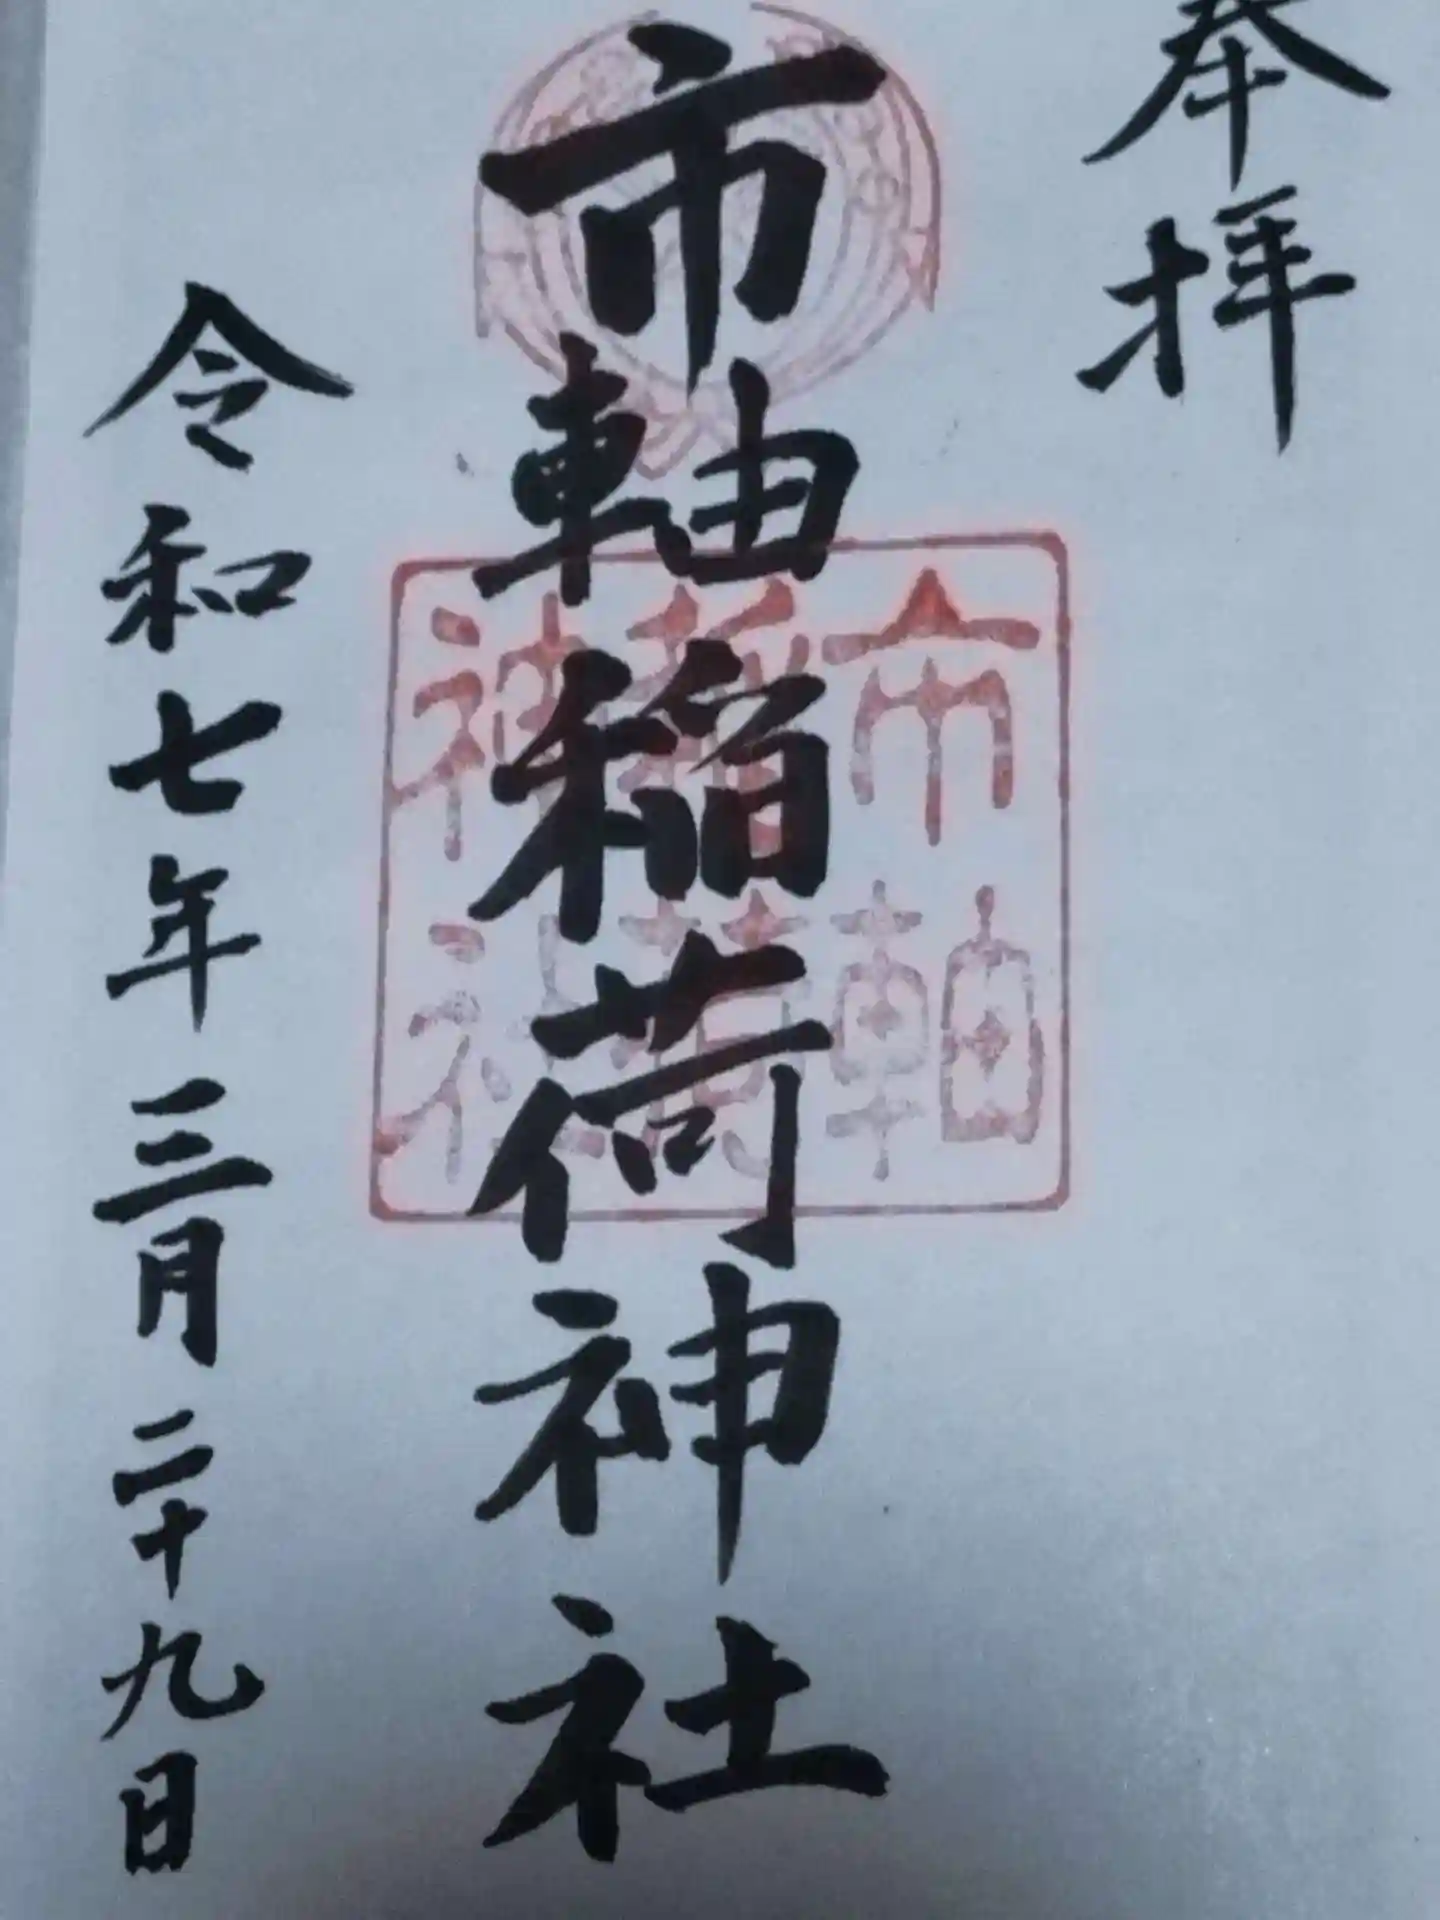 奉拝
市軸稲荷神社
市軸
稲荷
神社
令和七年三月二十九日